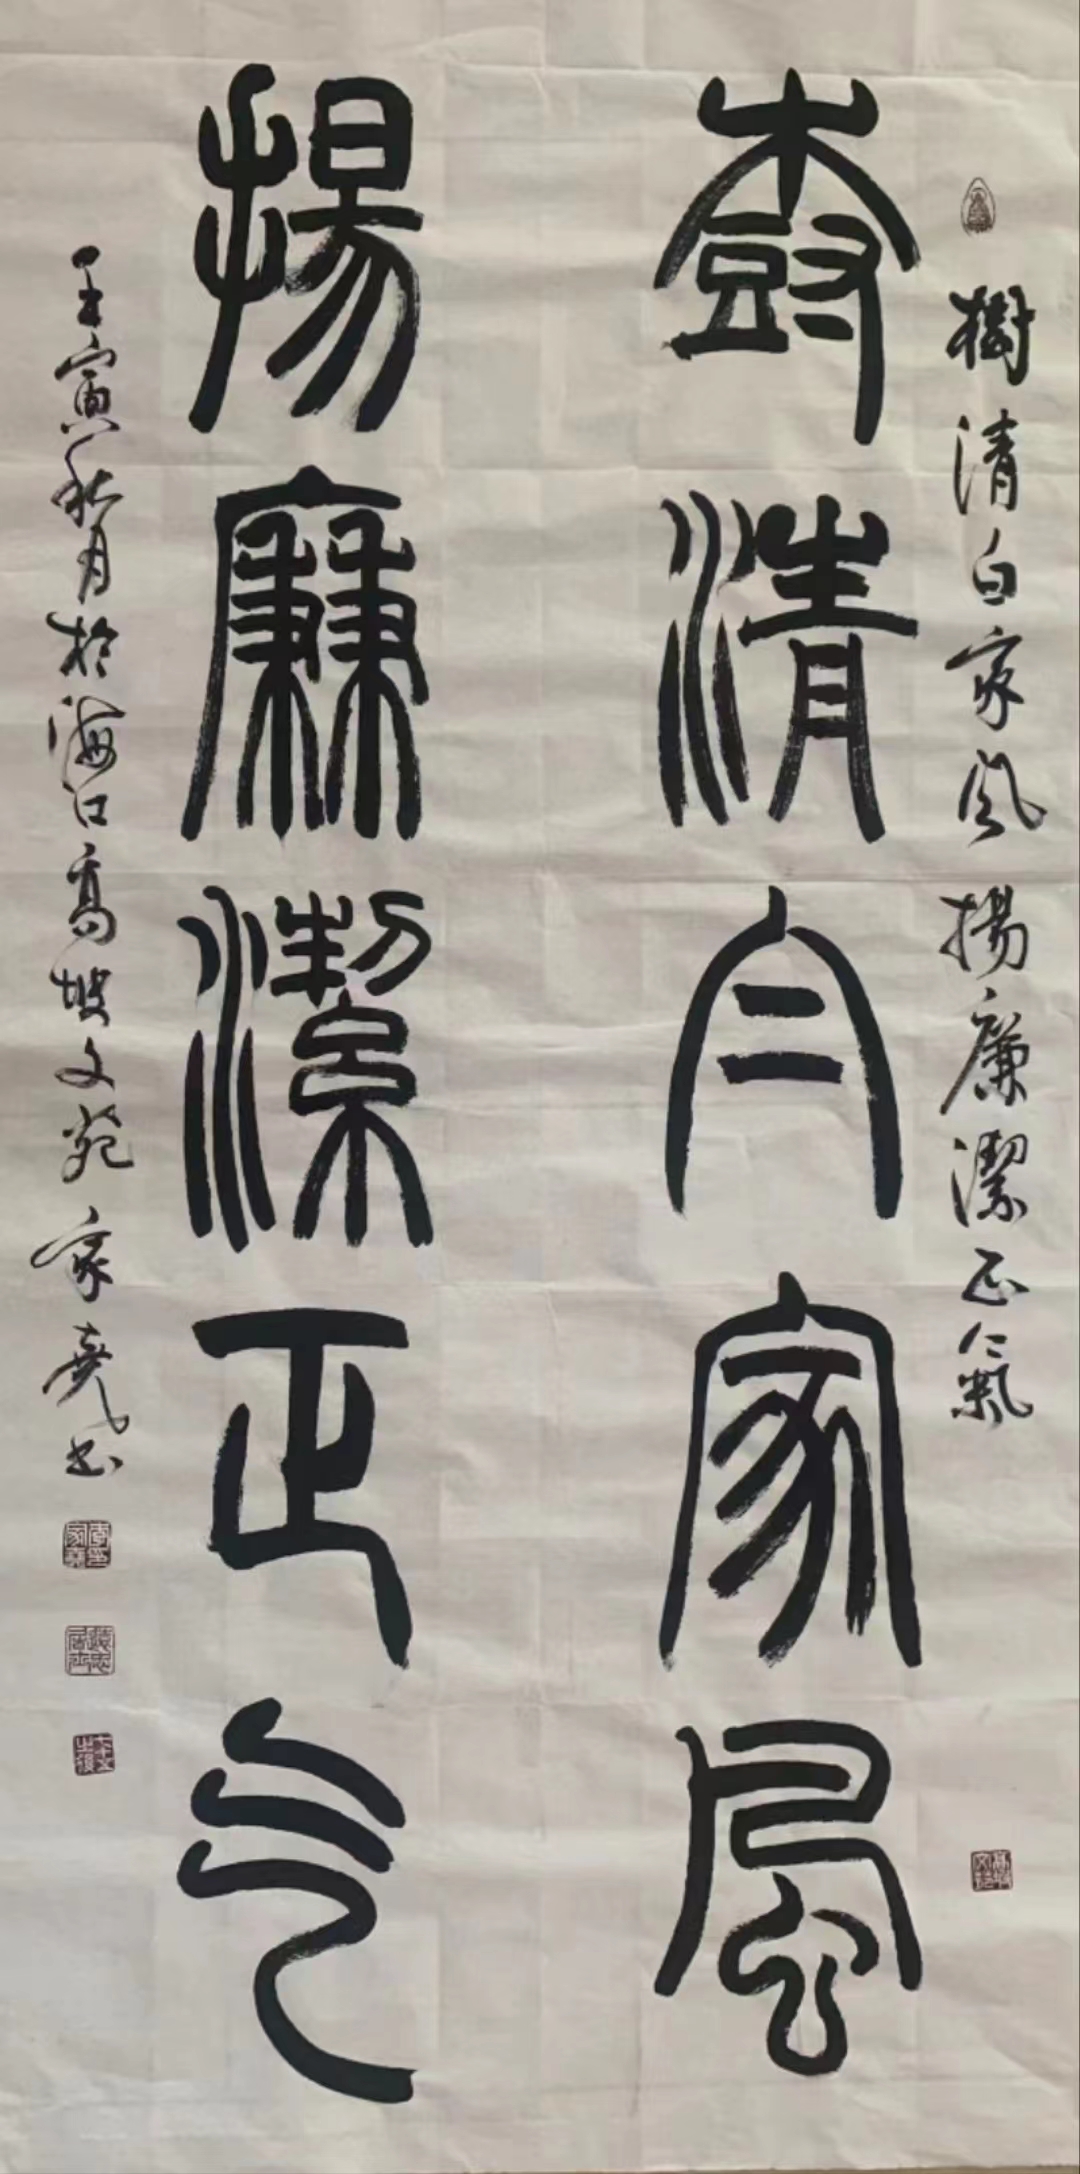 樹清白家風 揚廉潔正氣
樹清白家風
揚廉潔正气
壬寅秋月於海口高坡文苑 家堯书